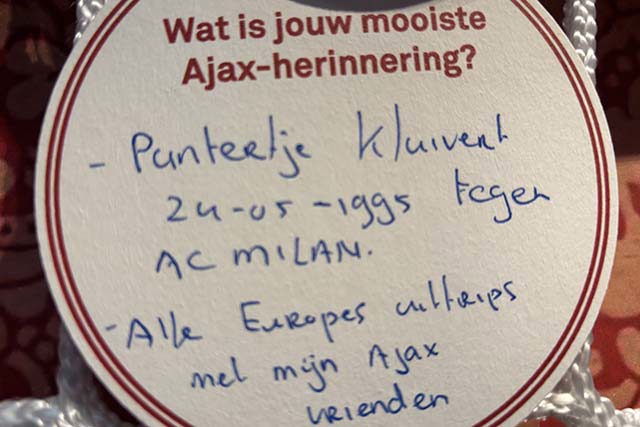 Wat is jouw mooiste
Ajax-herinnering?
- Punteertje Kluivert
24-05-1995 tegen
AC MILAN.
- Alle Europes uittrips
met mijn Ajax
vrienden